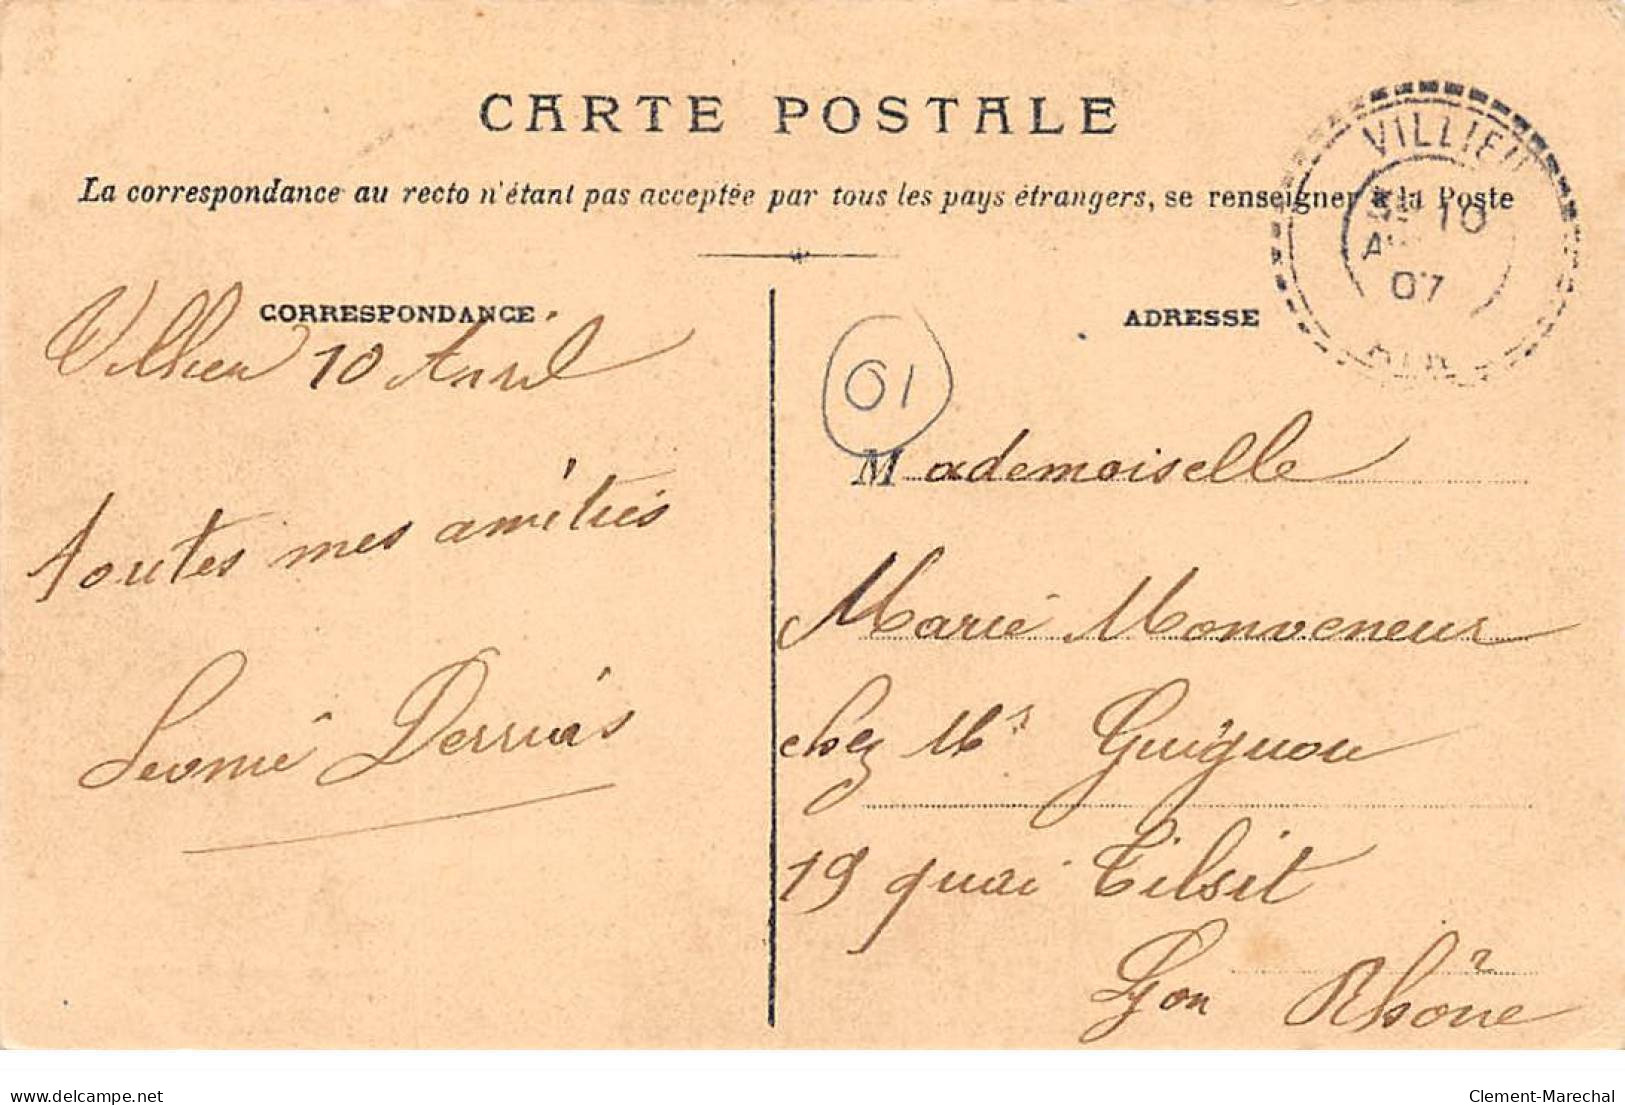 CARTE POSTALE
La correspondance au recto n'étant pas acceptée par tous les pays étrangers, se renseigner à la Poste
VILLIEU
10
07
CORRESPONDANCE
Villieu 10 Avril
toutes mes amitiés
ADRESSE
01
Mademoiselle
Marie Monveneur
chez Mr Guignou
19 quai Tilsit
Lyon Rhône
delcampe.net
Clement-Marechal